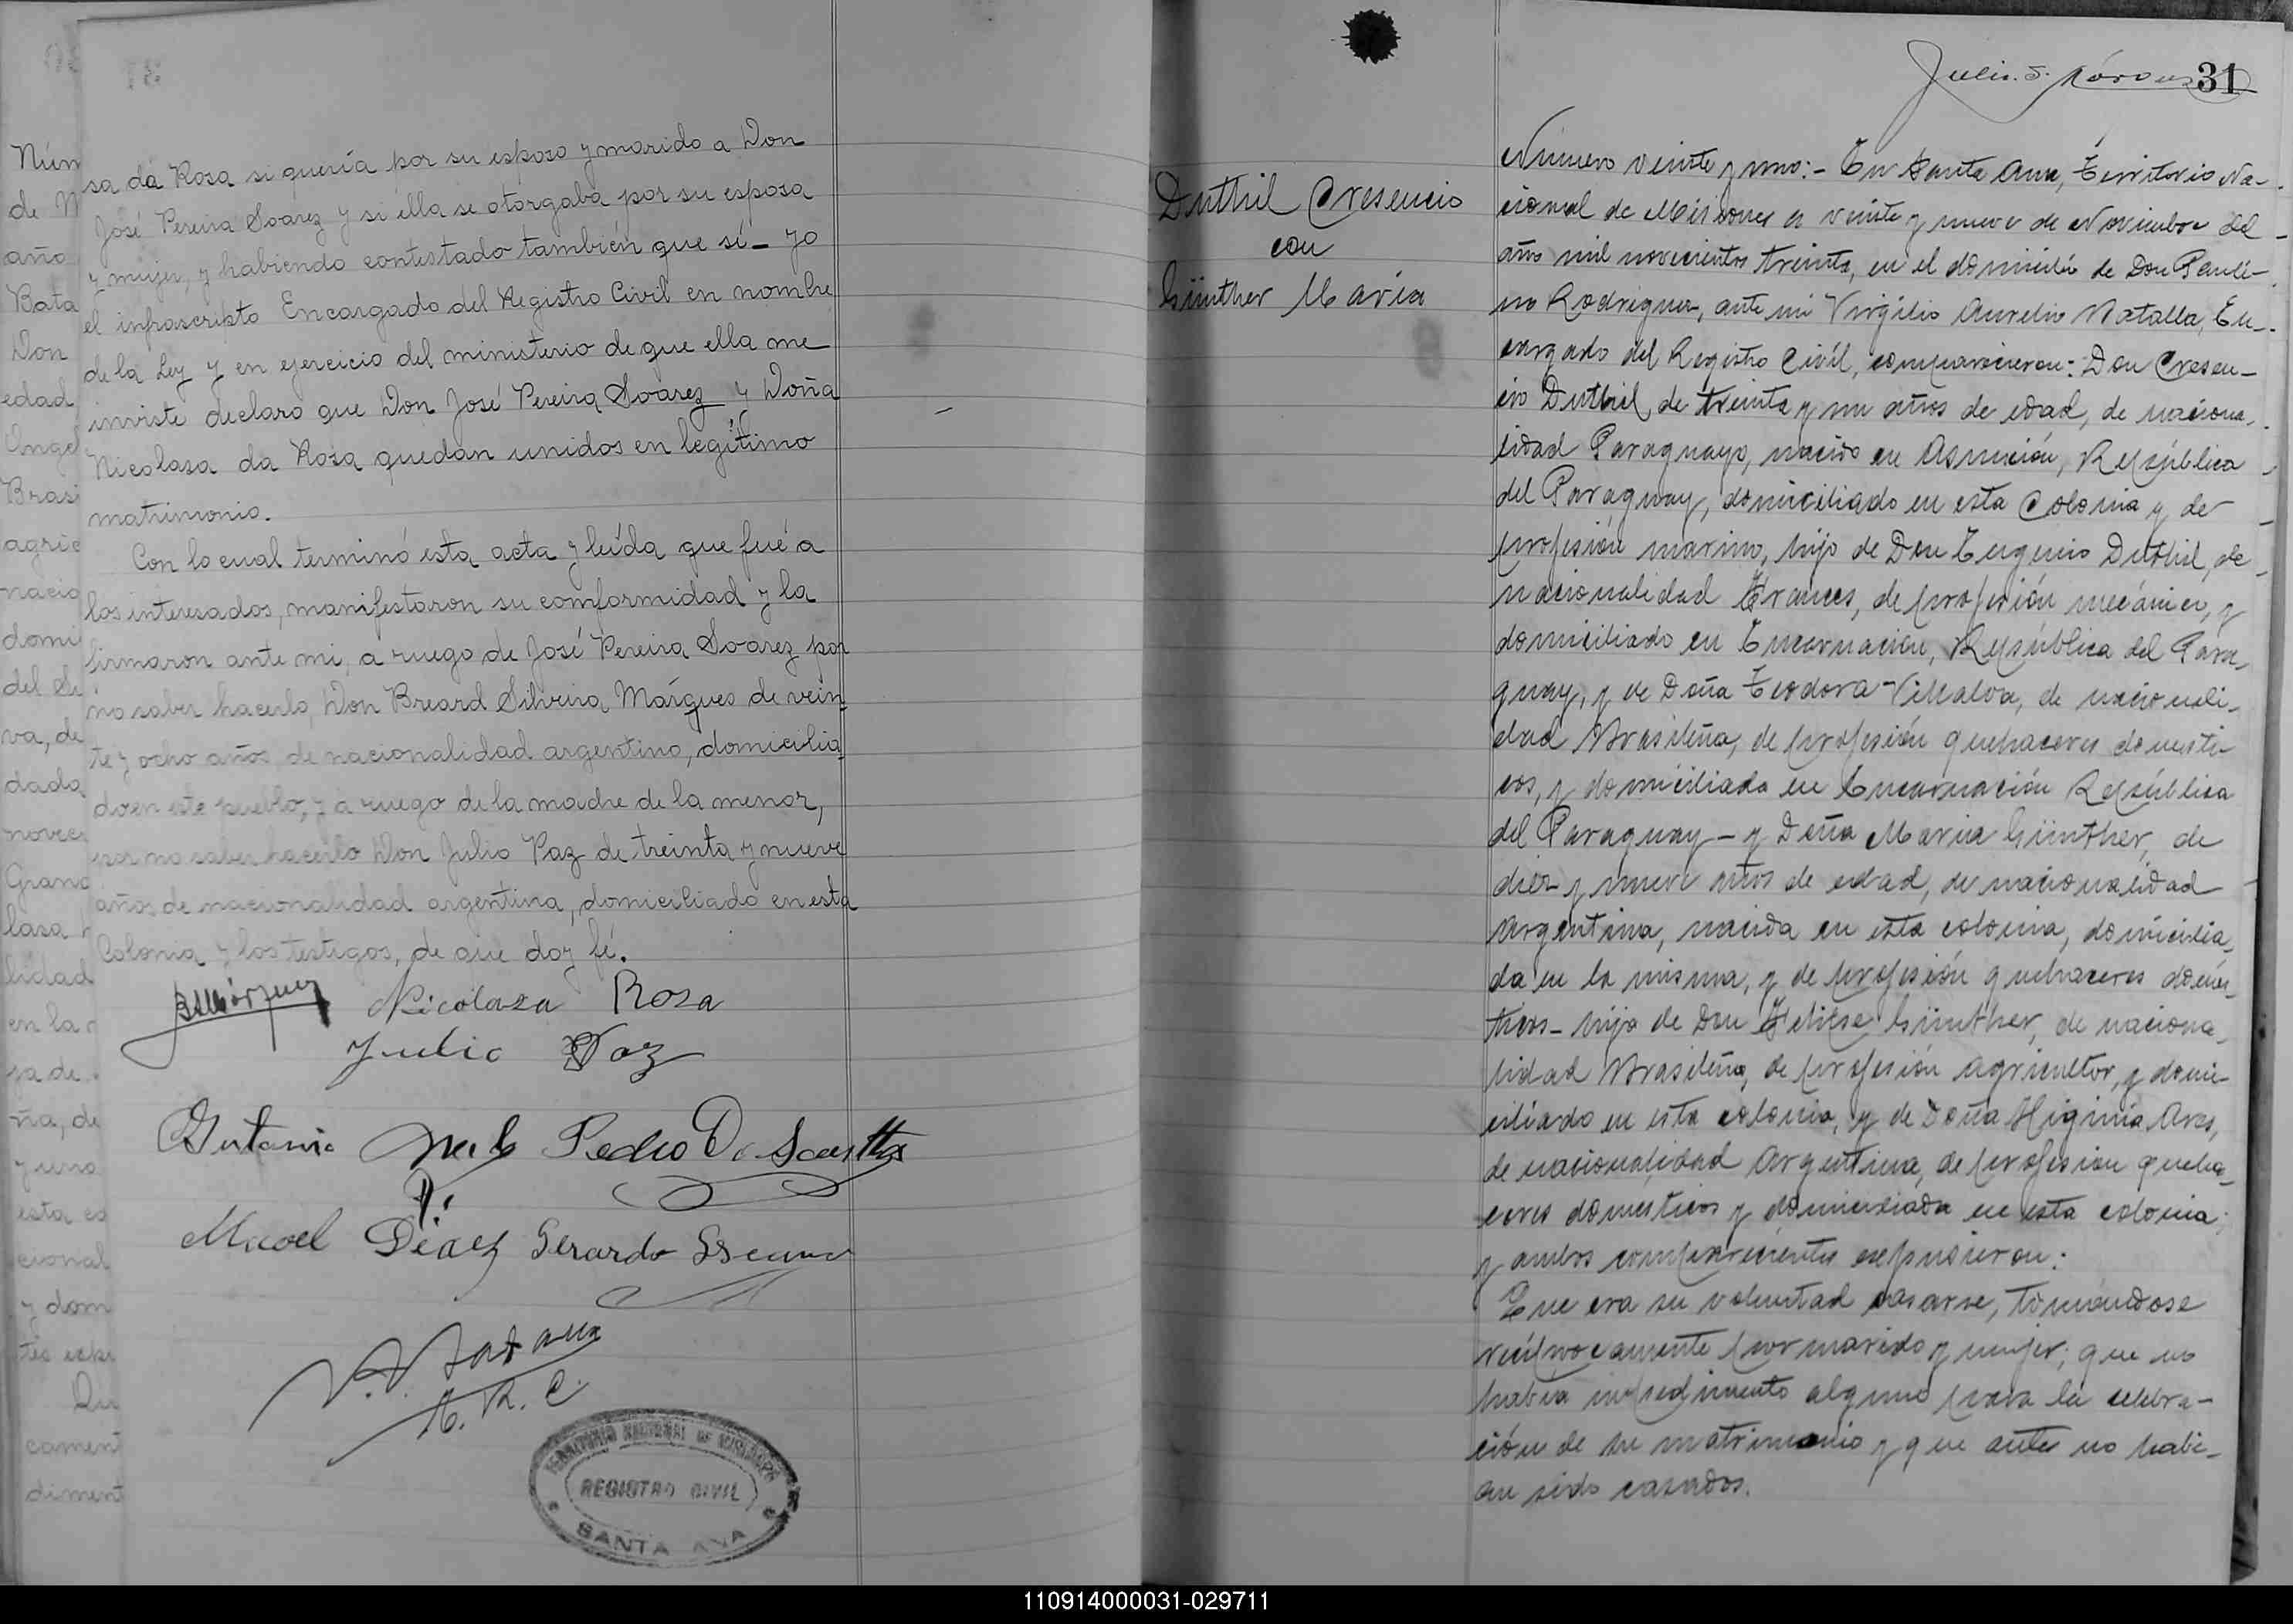 sa da Rosa si quería por su esposo y marido a Don
José Pereira Soarez y si élla se otorgaba por su esposa
y mujer, y habiendo contestado también que sí — yo
el infrascripto Encargado del Registro Civil en nombre
de la Ley y en ejercicio del ministerio de que ella me
inviste declaro que Don José Pereira Soarez y Doña
Nicolasa da Rosa quedan unidos en legítimo
matrimonio.
Con lo cual terminó esta acta y leída que fué a
los interesados, manifestaron su comformidad y la
firmaron ante mi, a ruego de José Pereira Soarez por
no saber hacerlo, Don Breard Silveira Márques de vein-
te y ocho años de nacionalidad argentino, domicilia-
do en este pueblo, y a ruego de la madre de la menor,
por no saber hacerlo Don Julio Paz de treinta y nueve
años de nacionalidad argentina, domiciliado en esta
Colonia y los testigos, de que doy fé.
BSMárquez Nicolaza Rosa
Julio Paz
Pedro
Díaz Gerardo
E. R. C.
TERRITORIO NACIONAL DE MISIONES
REGISTRO CIVIL
SANTA ANA
Núm
de M
año
Bata
Don
edad
Angel
Brasi
agric
nacio
domi
del Su
va, de
dada
novec
Grand
lasa
lidad
en la
ja de
ña, de
y una
esta co
cional
y dom
tes esp
Qu
cament
diment
Julio. S. Márquez 31
Duthil Cresencio
con
Günther Maria
Número veinte y uno:- En Santa Ana, Territorio Na-
cional de Misiones a veinte y nueve de Noviembre del
año mil novecientos treinta, en el domicilio de Don Pauli-
no Rodriguez, ante mi Virgilio Aurelio Natalla, En-
cargado del Registro Civil, comparecieron: Don Cresen-
cio Duthil, de treinta y un años de edad, de naciona-
lidad Paraguayo, nacido en Asunción, República
del Paraguay, domiciliado en esta Colonia y de
profesión marino, hijo de Don Eugenio Duthil, de
nacionalidad Frances, de profesión mecánico, y
domiciliado en Encarnación, República del Para-
guay, y de Doña Teodora Villalva, de nacionali-
dad Brasileña, de profesión quehaceres domesti-
cos, y domiciliada en Encarnación República
del Paraguay - y Doña Maria Günther, de
diez y nueve años de edad, de nacionalidad
Argentina, nacida en esta colonia, domicilia-
da en la misma, y de profesión quehaceres domes-
ticos - hija de Don Felipe Günther, de naciona-
lidad Brasileña, de profesión agricultor, y domi-
ciliado en esta colonia, y de Doña Higinia Ares,
de nacionalidad Argentina, de profesion queha-
ceres domesticos y domiciliada en esta colonia;
y ambos comparecientes expusieron:
Que era su voluntad casarse, tomándose
recíprocamente por marido y mujer; que no
habia impedimento alguno para la celebra-
ción de su matrimonio y que antes no habi-
an sido casados.
110914000031-029711